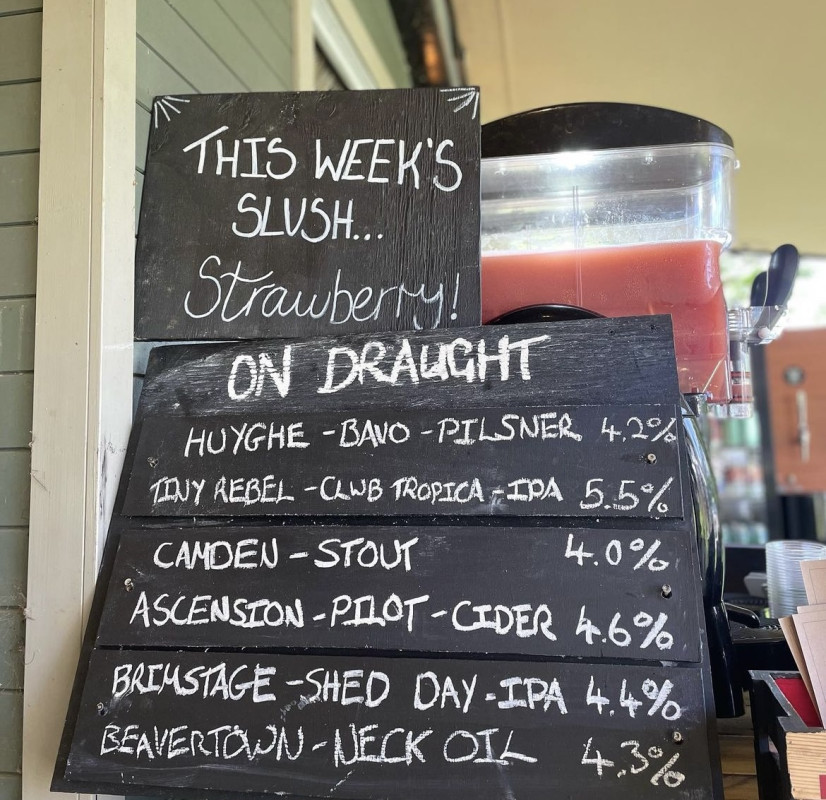 THIS WEEK'S
SLUSH...
Strawberry!
ON DRAUGHT
HUYGHE - BAVO - PILSNER 4.2%
TINY REBEL - CLUB TROPICA - IPA 5.5%
CAMDEN - STOUT 4.0%
ASCENSION - PILOT - CIDER 4.6%
BRIMSTAGE - SHED DAY - IPA 4.4%
BEAVERTOWN - NECK OIL 4.3%